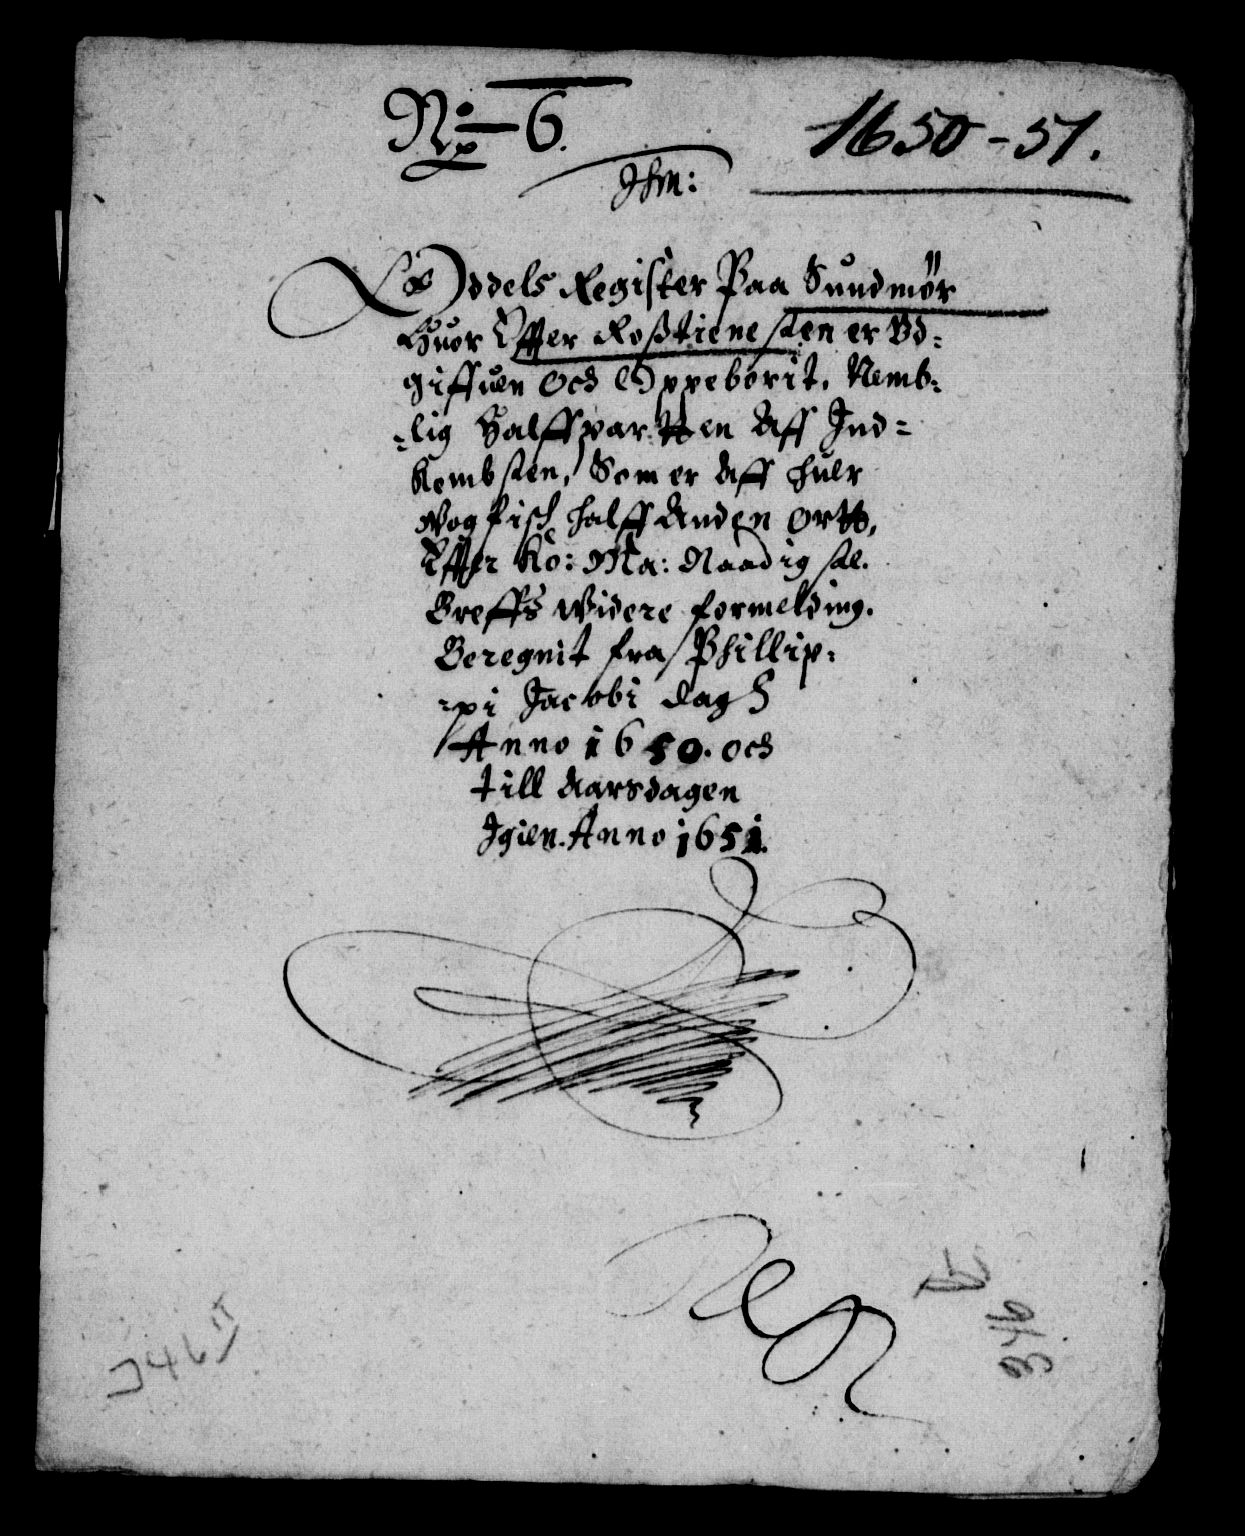 No 6.
1650-51.
Ihm:
Oddels Register Paa Sundmör
Huor Efter Rostienesten er Ud-
giffuen Och Oppeborit, Nemb-
-lig Halffparten Aff Ind-
kombsten, Som er Aff huer
Wog fisch halff Anden Ortt,
Effter Ko: Ma: Naadigste
Breffs Widere formelding.
Beregnit fra Phillip-
-pi Jacobi dag
Anno 1650. och
till Aarsdagen
Igien. Anno 1651.